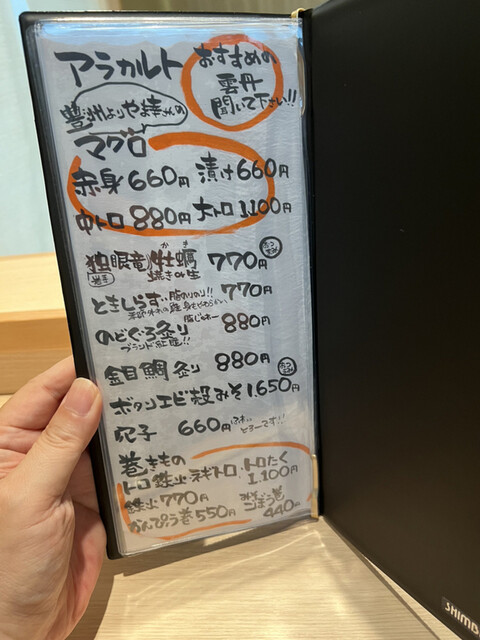 アラカルト
おすすめの
雲丹
聞いて下さい!!
豊洲よりやま幸さんの
マグロ
赤身660円 漬け660円
中トロ880円 大トロ1,100円
独眼竜牡蠣 770円
かき
岩手 焼きor生
ときしらず 脂のりのり!! 770円
のどぐろ炙り 脂じゅわー 880円
ブランド紅瞳!!
金目鯛炙り 880円
ボタンエビ殻みそ1,650円
穴子 660円 ふわ
とろーです!!
巻きもの
トロ鉄火・ネギトロ・トロたく
1,100円
鉄火770円
かんぴょう巻550円
ごぼう巻
440円
SHIMB